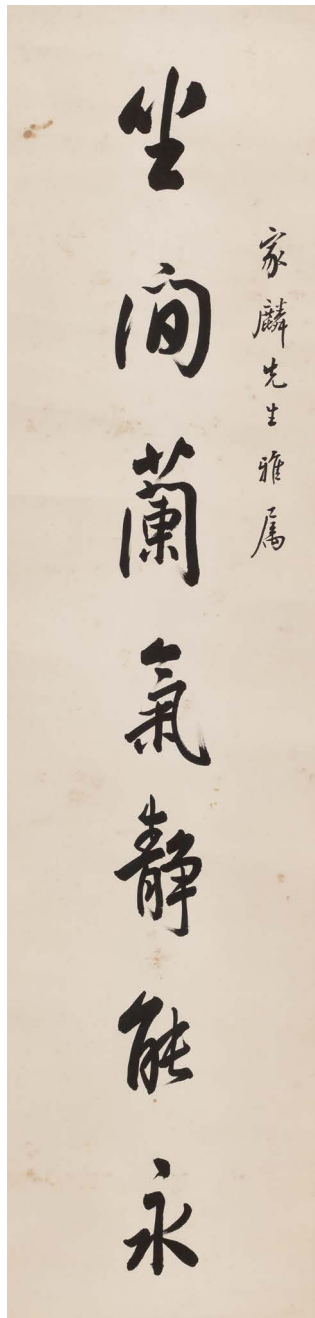 家麟先生雅属
坐间蘭氣靜能永